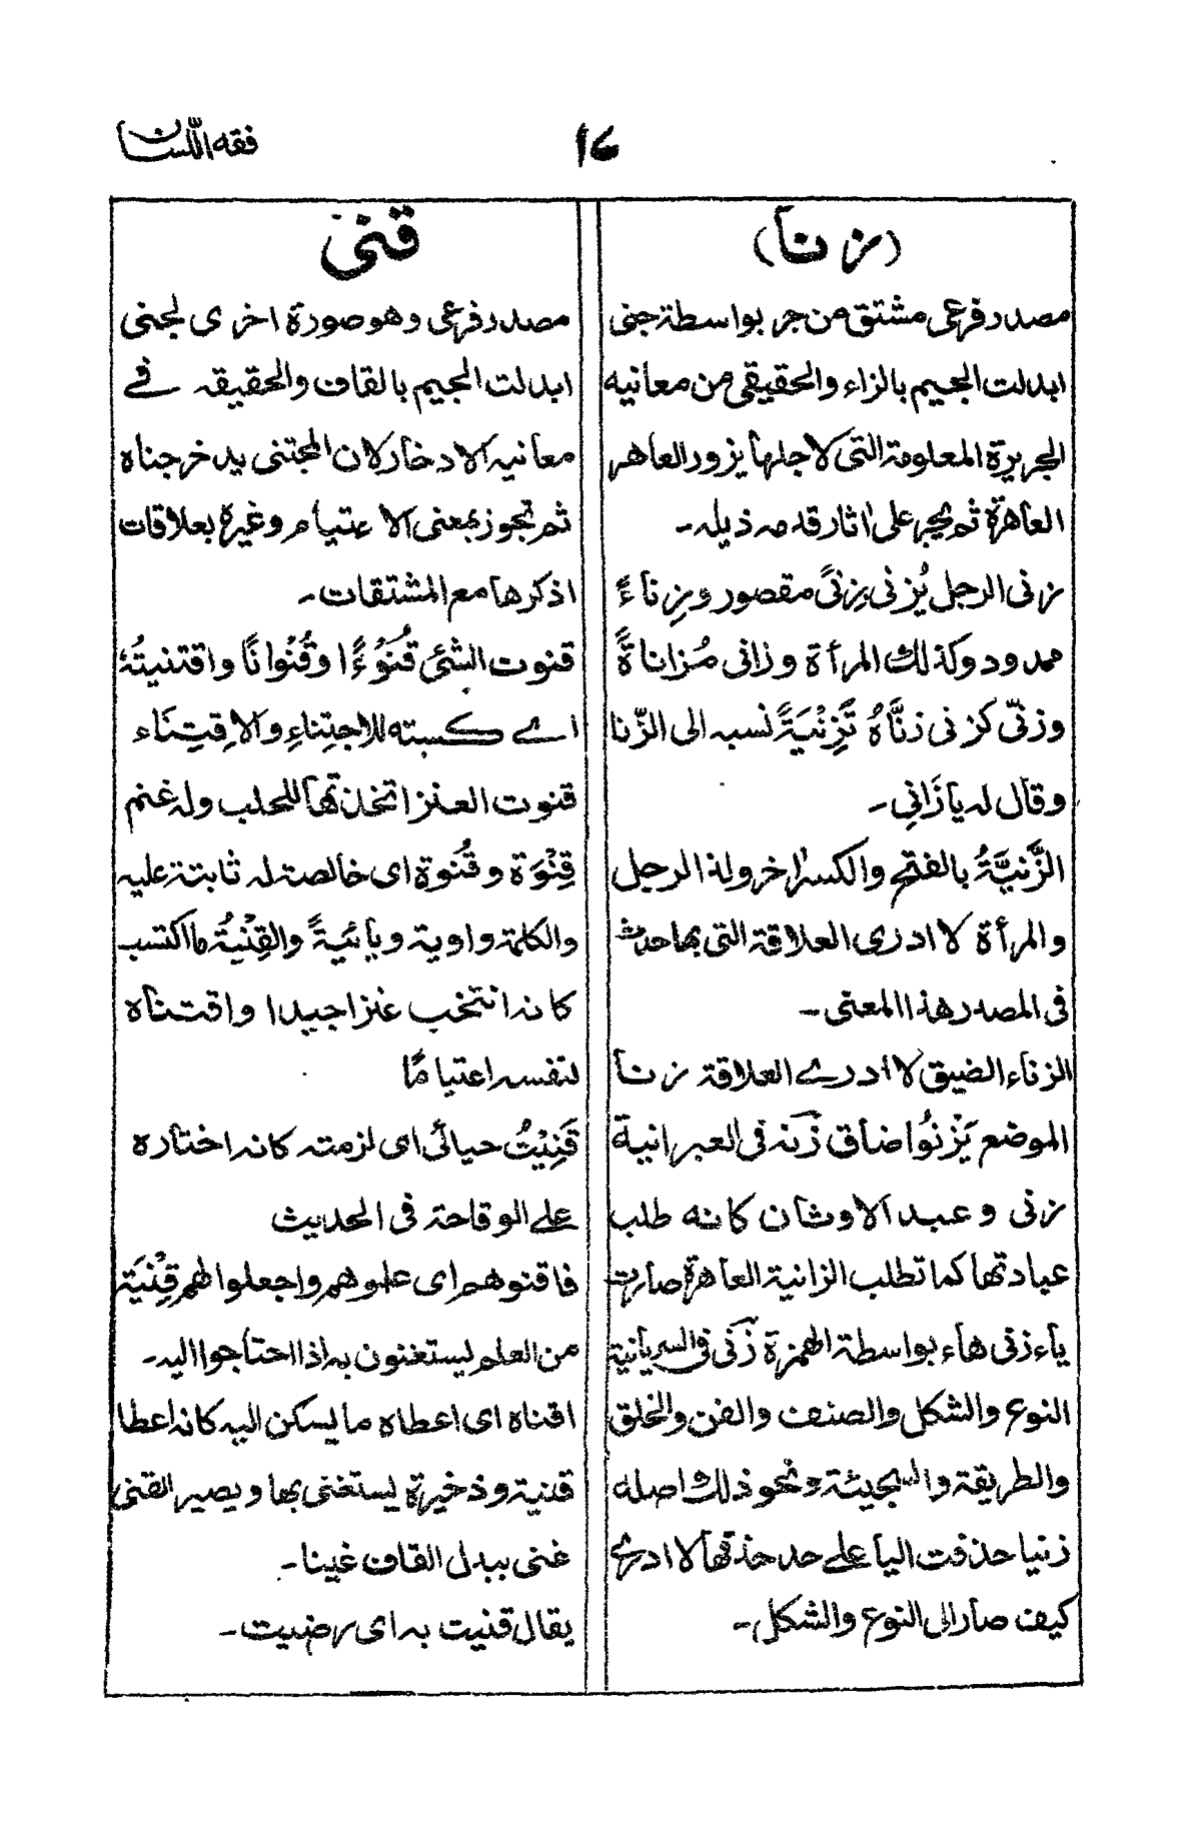 فقه اللسان
١٤
(زنا)
مصدر فرعی مشتق من جر بواسطة جنی
ابدلت الجيم بالزاء والحقیقی من معانیه
الجريرة المعلومة التی لاجلها یزور العاهر
العاهرة ثم یجر علی اثار قدمه ذیله۔
زنی الرجل یُزنی زِنیً مقصور وزِناءً
ممدود وكذلك المرأة وزانی مُزاناةً
وزنّی كزنی زنَّاهُ تَزِنْيَةً نسبه الی الزّنا
وقال له یا زَانِی۔
الزَّنيَّةُ بالفتح والکسر اخر ولد الرجل
والمرأة لا ادری العلاقة التی بها حدث
فی المصدر هذا المعنی۔
الزناء الضیق لا ادرے العلاقة زنأ
الموضع یَزْنوُا ضاق زَنَه فی العبرانیة
زنی و عبد الاوثان كانه طلب
عبادتها كما تطلب الزانیة العاهرة صارت
یاء زنی هاء بواسطة الهمزة زَنی فی السریانیة
النوع والشکل والصنف والفن والخلق
والطریقة والسجیئة ونحو ذلك اصله
زنیا حذفت الیا علے حد حذفها لا ادری
کیف صار الی النوع والشکل۔
قنی
مصدر فرعی وهو صورة اخری لجنی
ابدلت الجیم بالقاف والحقیقه فے
معانیه الادخار لان المجتنی یدخر جناه
ثم تجوز بمعنی الاعتیام وغیره بعلاقات
اذکرها مع المشتقات۔
قنوت الشئ قُنوْءًا وقُنْوانًا واقتنیتُهُ
اے کسبته للاجتِناءِ والاِقتِنَاء
قنوت العنز اتخذتها للحلب وله غنم
قِنْوَة وقُنوة ای خالصة له ثابتة علیه
والکلمة واویة ویائیةً والقِنْیةُ ما اکتسب
كانه انتخب عنزا جیدا واقتناه
لنفسه اعتیامًا
قَنِیْتُ حیائی ای لزمته کانه اختاره
علے الوقاحة فی الحدیث
فاقنوهم ای علموهم واجعلوا لهم قِنْیَة
من العلم لیستغنون به اذا احتاجوا الیه۔
اقناه ای اعطاه ما یسکن الیه کانه اعطا
قنیة وذخیرة لیستغنی بها ویصیر القنی
غنی ببدل القاف غینا۔
یقال قنیت به ای رضیت۔